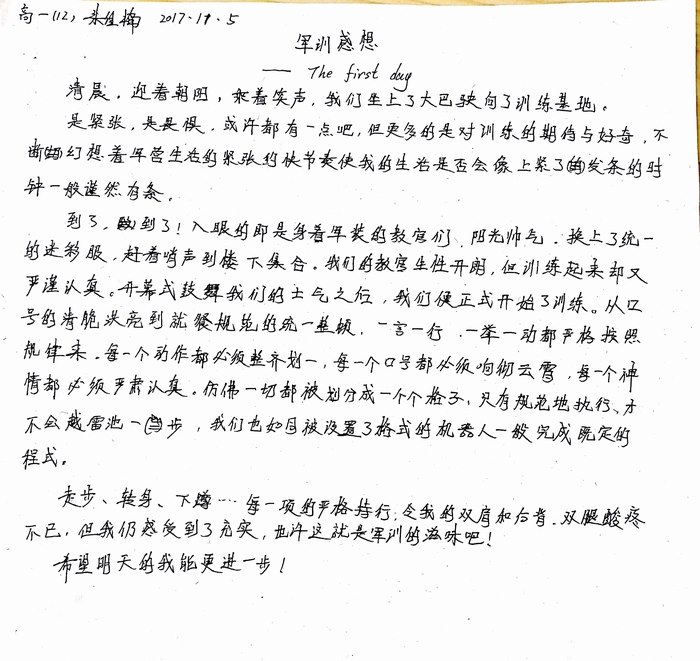 高一(12) 朱佳楠 2017.11.5
军训感想
—— The first day
清晨，迎着朝阳，乘着笑声，我们坐上了大巴驶向了训练基地。
是紧张，是畏惧，或许都有一点吧，但更多的是对训练的期待与好奇，不
断幻想着军营生活的紧张的快节奏使我的生活是否会像上紧了的发条的时
钟一般谨然有条。
到了，到了！入眼的即是身着军装的教官们，阳光帅气。换上了统一
的迷彩服，赶着哨声到楼下集合。我们的教官生性开朗，但训练起来却又
严谨认真。开幕式鼓舞我们的士气之后，我们便正式开始了训练。从口
号的清脆洪亮到就餐规范的统一整顿，一言一行，一举一动都严格按照
规律来。每一个动作都必须整齐划一，每一个口号都必须响彻云霄，每一个神
情都必须严肃认真。仿佛一切都被划分成一个个格子，只有规范地执行，才
不会越雷池一步，我们也如同被设置了格式的机器人一般完成既定的
程式。
走步、转身、下蹲……每一项的严格持行，令我的双肩和后背、双腿酸疼
不已，但我仍感受到了充实，也许这就是军训的滋味吧！
希望明天的我能更进一步！